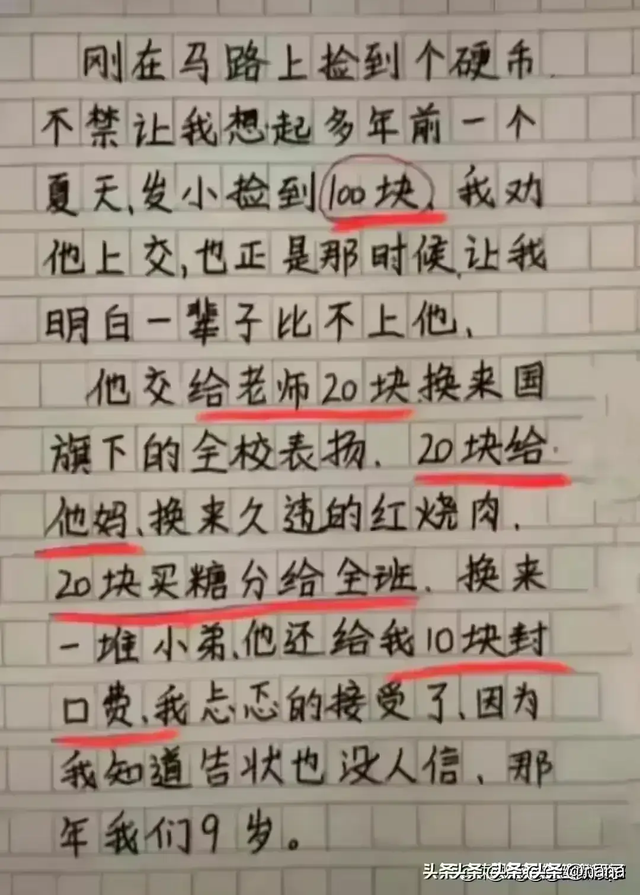 刚在马路上捡到个硬币.
不禁让我想起多年前一个
夏天,发小捡到100块、我劝
他上交,也正是那时候,让我
明白一辈子比不上他、
他交给老师20块.换来国
旗下的全校表扬、20块给
他妈、换来久违的红烧肉、
20块买糖分给全班、换来
一堆小弟、他还给我10块封
口费、我忐忑的接受了、因为
我知道告状也没人信、那
年我们9岁。